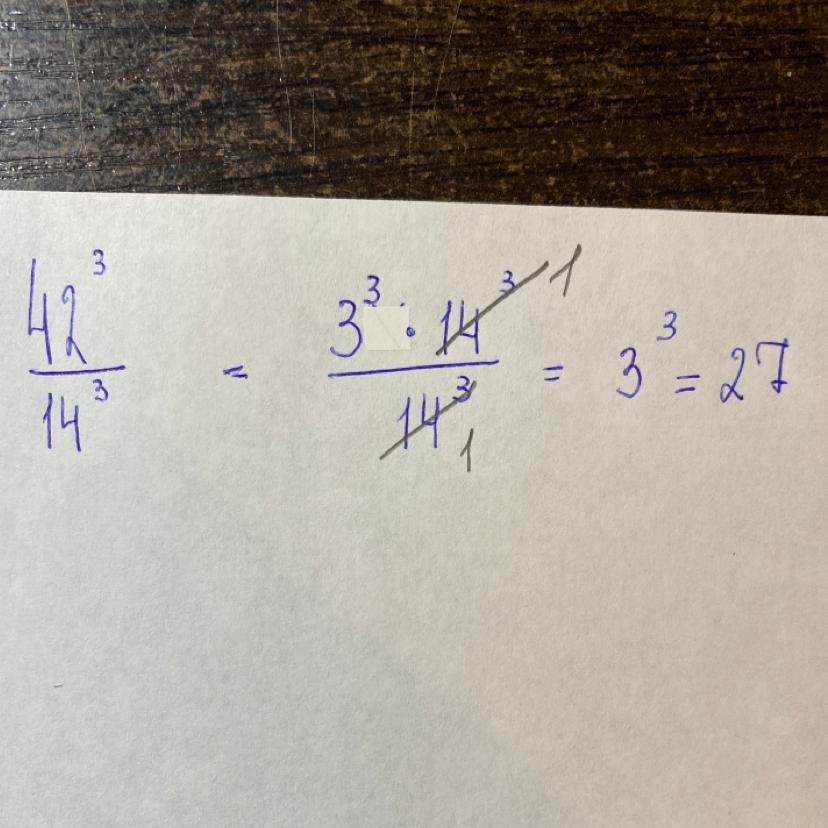 42³/14³ = 3³ · 14³ 1/14³ 1 = 3³ = 27